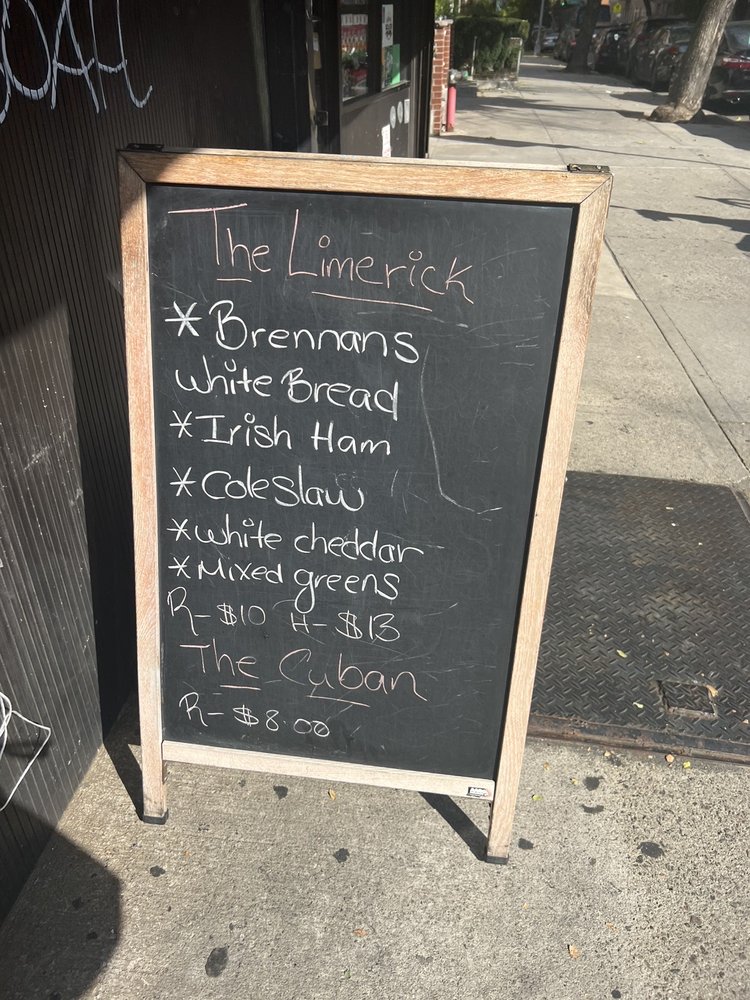 The Limerick
* Brennans
White Bread
* Irish Ham
* Coleslaw
* White cheddar
* Mixed greens
R- $10 H- $13
The Cuban
R- $8.00